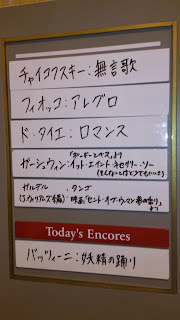 チャイコフスキー：無言歌
フィオッコ：アレグロ
ド・タイエ：ロマンス
「ポーギーとベス」より
ガーシュウィン：イット・エイント・ネセサリー・ソー
ガルデル：タンゴ
(J.ウィリアムズ編) 映画「セント・オブ・ウーマン 夢の香り」
より
Today's Encores
バッヅィーニ：妖精の踊り